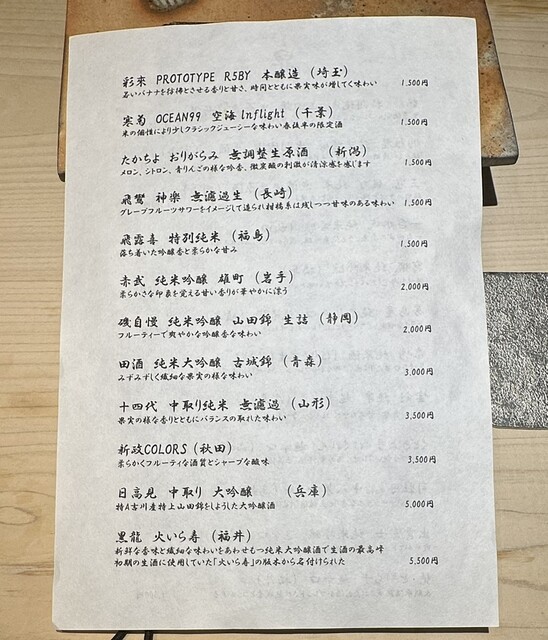 彩來 PROTOTYPE R5BY 本醸造 (埼玉)
若いバナナを彷彿とさせる香りと甘さ、時間とともに果実味が増してく味わい 1,500円
寒菊 OCEAN99 空海 Inflight (千葉)
米の個性により少しクラシックジューシーな味わい春後半の限定酒 1,500円
たかちよ おりがらみ 無調整生原酒 (新潟)
メロン、シトロン、青りんごの様な吟香、微炭酸の刺激が清涼感を感じます 1,500円
飛鸞 神楽 無濾過生 (長崎)
グレープフルーツサワーをイメージして造られ柑橘系は残しつつ甘味のある味わい 1,500円
飛露喜 特別純米 (福島)
落ち着いた吟醸香と柔らかな甘み 1,500円
赤武 純米吟醸 雄町 (岩手)
柔らかさな印象を覚える甘い香りが華やかに漂う 2,000円
磯自慢 純米吟醸 山田錦 生詰 (静岡)
フルーティーで爽やかな吟醸香な味わい 2,000円
田酒 純米大吟醸 古城錦 (青森)
みずみずしく繊細な果実の様な味わい 3,000円
十四代 中取り純米 無濾過 (山形)
果実の様な香りとともにバランスの取れた味わい 3,500円
新政COLORS (秋田)
柔らかくフルーティな酒質とシャープな酸味 3,500円
日高見 中取り 大吟醸 (兵庫)
特A吉川産特上山田錦をしようした大吟醸酒 5,000円
黒龍 火いら寿 (福井)
新鮮な香味と繊細な味わいをあわせもつ純米大吟醸酒で生酒の最高峰
初期の生酒に使用していた「火いら寿」の版木から名付けられた 5,500円